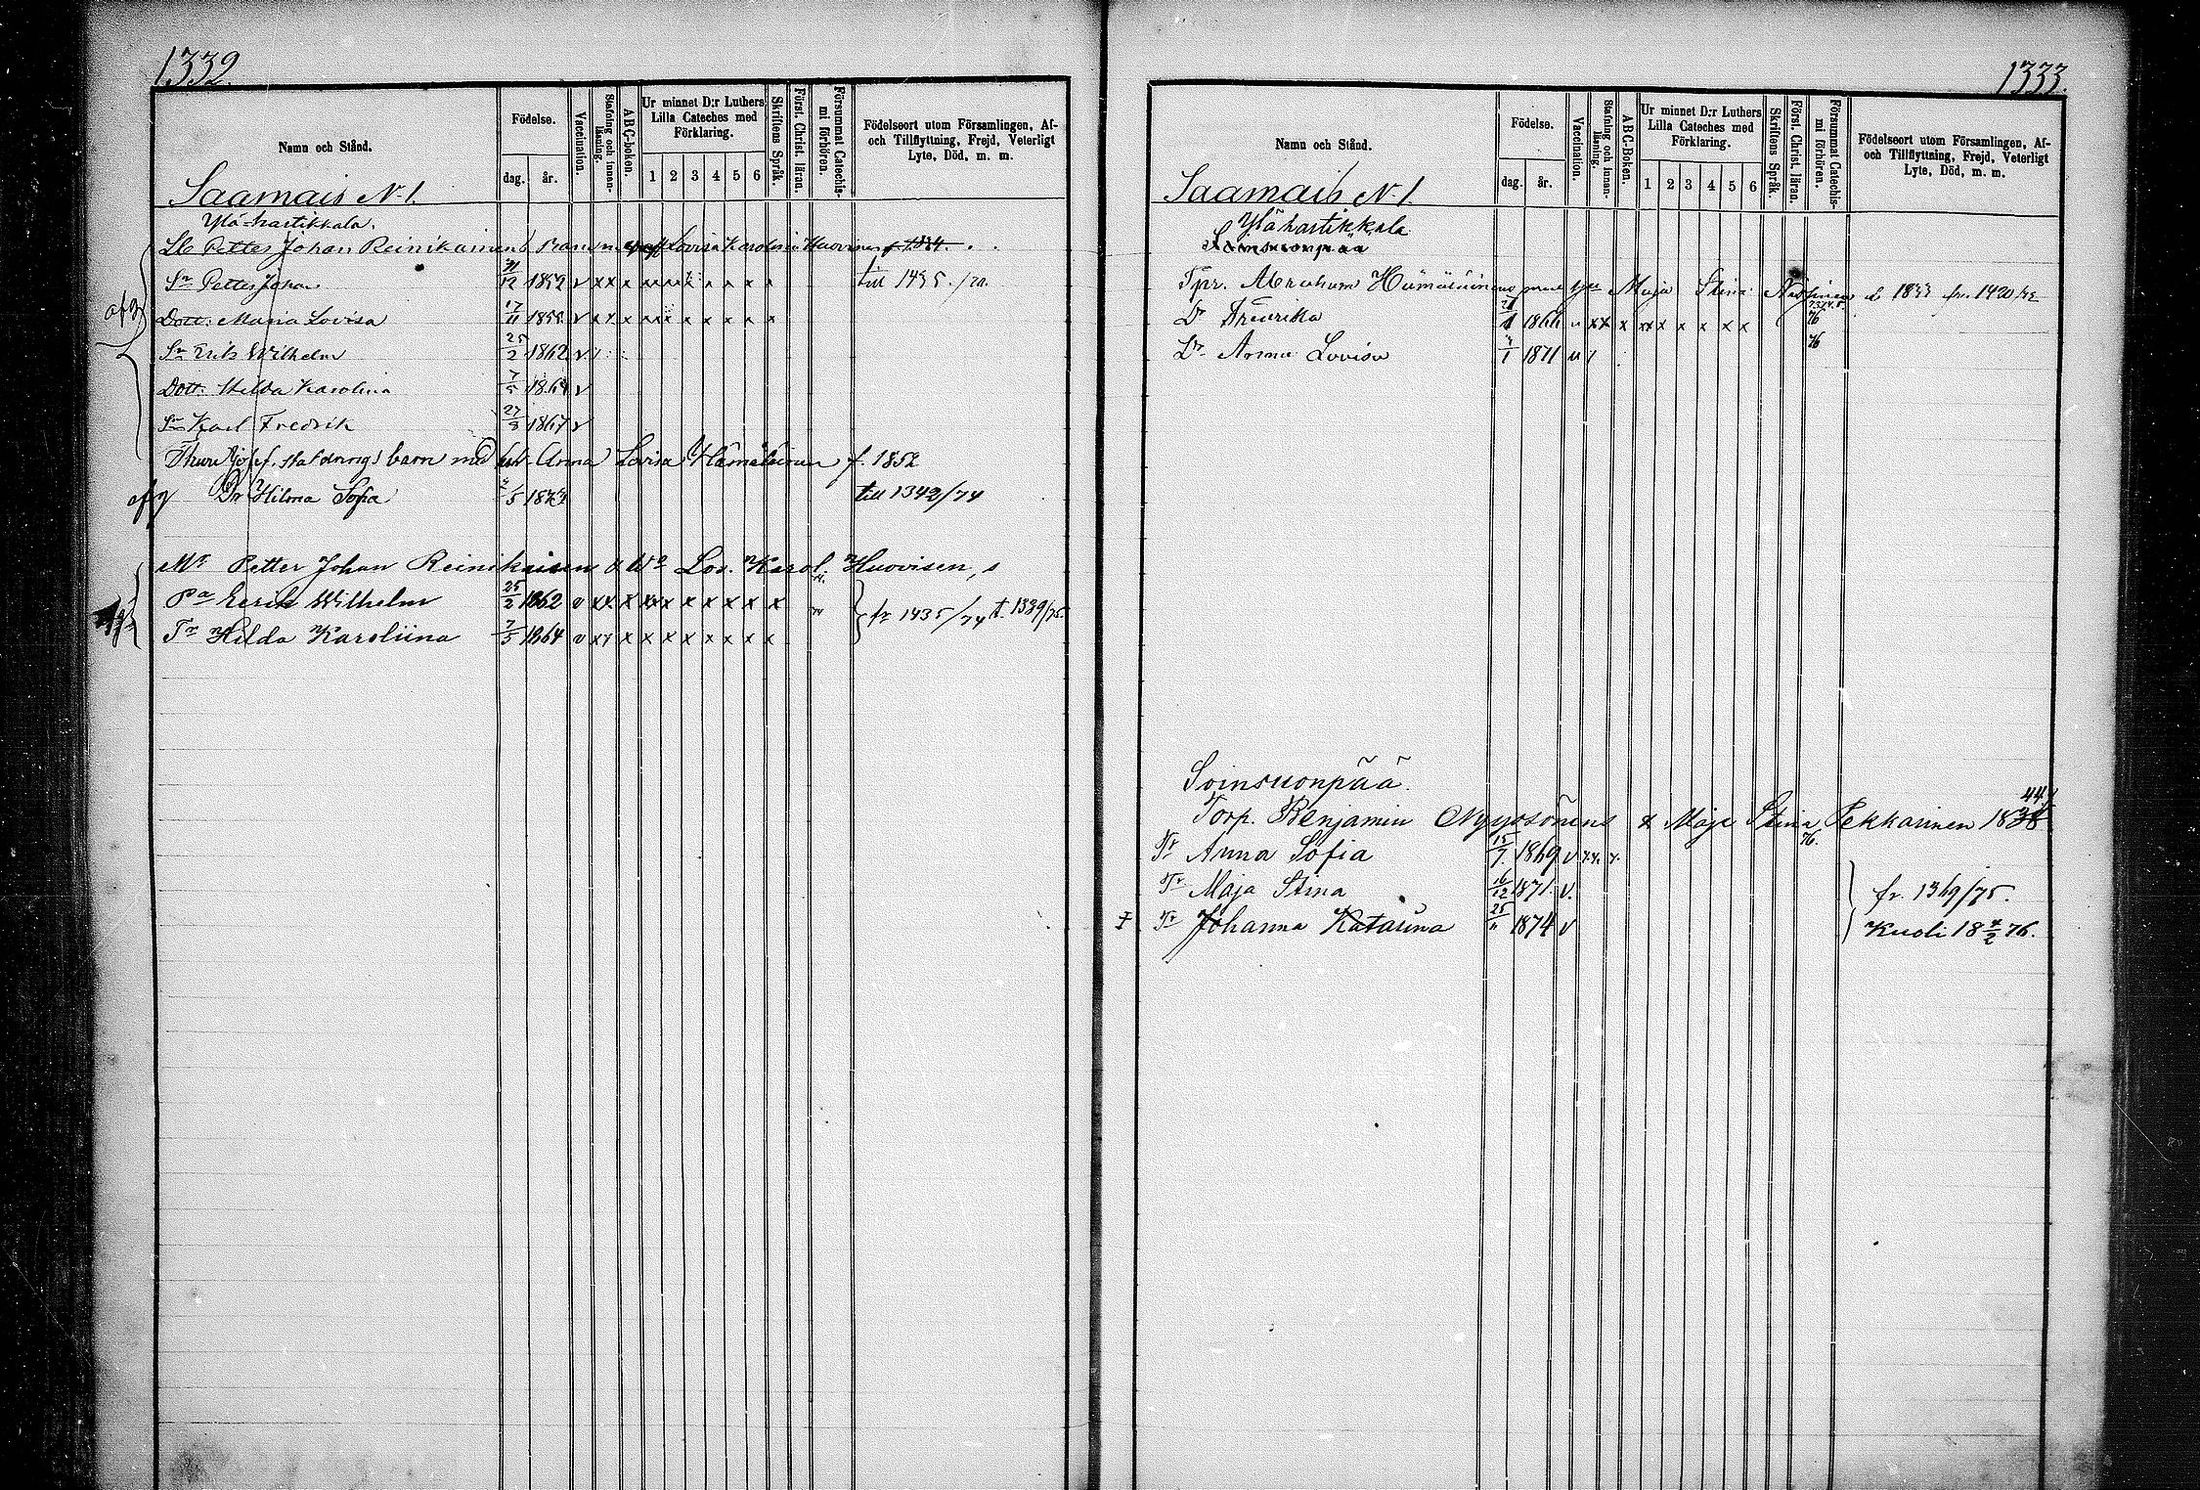 1332.
Namn och Stånd.
Födelse.
dag. år.
Vaccination.
Stafning och innan-läsning.
ABC-boken.
Ur minnet D:r Luthers Lilla Cateches med Förklaring.
1 2 3 4 5 6
Skriftens Språk.
Först. Christ. läran.
Försummat Catechis-mi förhören.
Födelseort utom Församlingen, Af-och Tillflyttning, Frejd, Veterligt Lyte, Död, m. m.
Saamais N:1.
Ylä-hartikkala.
Petter Johan Reinikainens barn m Lovisa Karolina Huovinen
Sn Petter Johan 12 1852 v xx x x x x x x x x till 1435./70.
afg
Dott: Maria Lovisa 17/11 185 v x x x x x x x x x x
Sn Erik Wilhelm 25/2 1862 v
Dott: Hilda Karolina 7/5 1864 v
Sn Karl Fredrik 27/8 1867 v
barn med Anna Lovisa Hämäläinen f. 1852
afg Dr Hilma Sofia /5 187 till 1342/74
Petter Johan Reinikaisen & Wo Lov. Karol. Huovisen, s
Pa Eerik Wilhelm 25/2 1862 v xx x xx x x x x x x
fr 1435/74 t. 1339/75.
Tr Hilda Karoliina 7/5 1864 v xx x x x x x x x x
1333.
Namn och Stånd.
Födelse.
dag. år.
Vaccination.
Stafning och innan-läsning.
ABC-Boken.
Ur minnet D:r Luthers Lilla Cateches med Förklaring.
1 2 3 4 5 6
Skriftens Språk.
Först. Christ. läran.
Försummat Catechis-mi förhören.
Födelseort utom Församlingen, Af-och Tillflyttning, Frejd, Veterligt Lyte, Död, m. m.
Saamais N:1.
Ylähartikkala
Tpr. Abraham Hämäläinens Maja Stina fr. 1420
Dr Fredrika 1866 xx x xx x x x x x 76
Dr Anna Lovisa /1 1871 76
Soinsuonpää.
Torp. Benjamin Nyyssönens & Maja Stina Pekkarinen 1838 44
Tr Anna Sofia 15/7. 1869 v x.x. x. 76.
Tr Maja Stina 16/12 1871. v. fr. 1369/75.
Tr Johanna Katariina 25/" 1874 v Kuoli 18 /2 76.